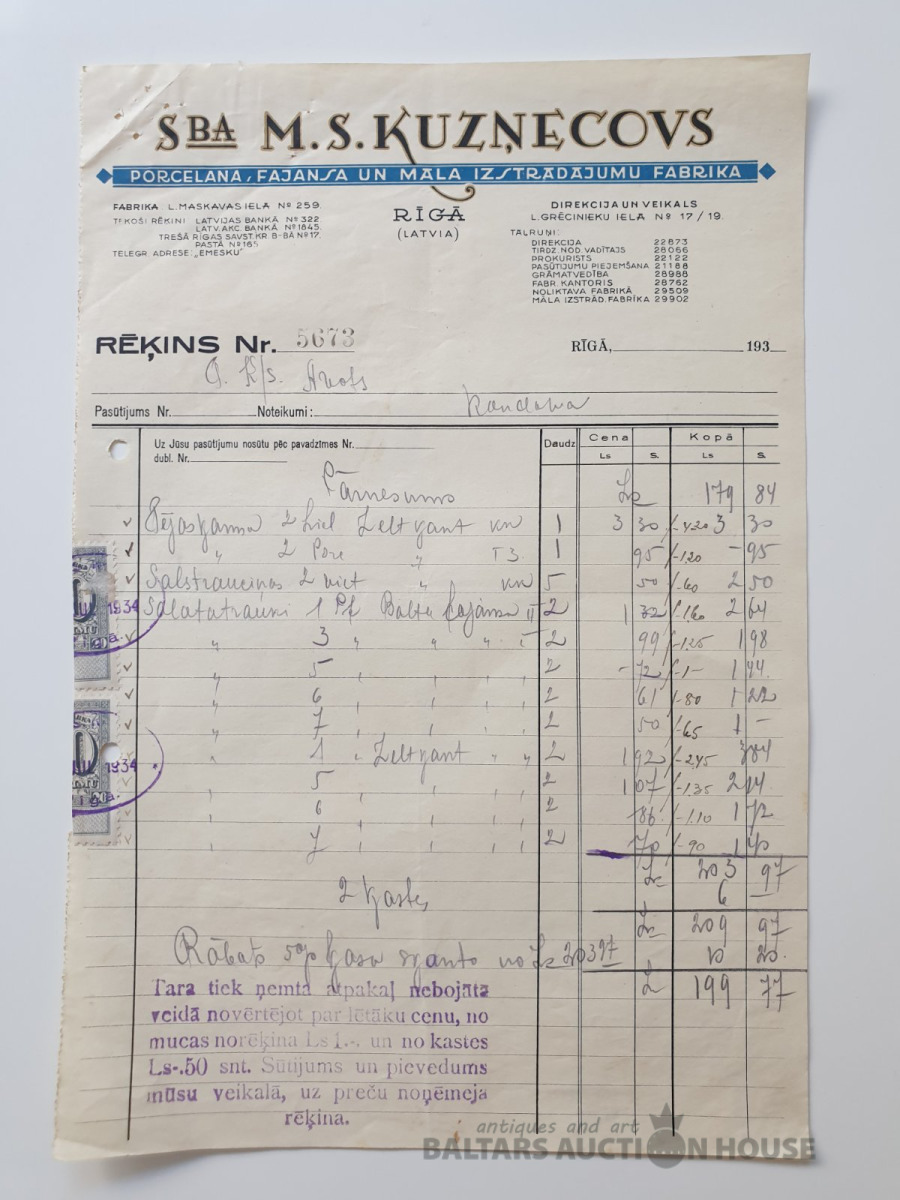 SBA M.S. KUZŅECOVS
PORCELANA, FAJANSA UN MĀLA IZSTRĀDĀJUMU FABRIKA
FABRIKA L. MASKAVAS IELĀ Nº 259.
TEKOŠI RĒĶINI: LATVIJAS BANKĀ Nº 322
LATV. AKC. BANKĀ Nº 1845.
TREŠĀ RĪGAS SAVST. KR. B-BĀ Nº 17.
PASTĀ Nº 165
TELEGR. ADRESE: „EMESKU"
RĪGĀ
(LATVIA)
DIREKCIJA UN VEIKALS
L. GRĒCINIEKU IELĀ Nº 17/19.
TAĻRUŅI:
DIREKCIJA 22873
TIRDZ. NOD. VADĪTAJS 28066
PROKURISTS 22122
PASŪTĪJUMU PIEJEMŠANA 21188
GRĀMATVEDĪBA 28988
FABR. KANTORIS 28762
NOLIKTAVA FABRIKĀ 29509
MĀLA IZSTRĀD. FABRIKA 29902
RĒĶINS Nr. 5673
RĪGĀ, 193
Kandava
Pasūtījums Nr. Noteikumi:
Uz Jūsu pasūtījumu nosūtu pēc pavadzīmes Nr.
dubl. Nr.
Daudz Cena Kopā
Ls S. Ls S.
Pārnesums Ls 179 84
2 liel Zeltkant 1 3 30 /-4.20 3 30
„ 2 Porc „ T3. 1 95 /-1.20 - 95
2 viet „ 5 50 /-60 2 50
1 Pf Balta fajansa II 2 1 32 /-1.60 2 64
„ 3 „ „ „ 2 99 /-1.25 1 98
„ 5 2 -72 /-1- 1 44
„ 6 2 61 /-80 1 22
„ 7 2 50 /-65 1 -
„ 1 „ Zeltkant „ „ 2 1 92 /-2.45 3 84
„ 5 2 1 07 /-1.35 2 14
„ 6 2 86 /-1.10 1 72
„ 7 2 70 /-90 1 40
Ls 203 97
2 kastes 6
Ls 209 97
Rābats 5% kasa no Ls 203.97 10 20.
Ls 199 77
Tara tiek ņemta atpakaļ nebojāta
veidā novērtējot par lētāku cenu, no
mucas norēķina Ls 1.-. un no kastes
Ls-.50 snt. Sūtījums un pievedums
mūsu veikalā, uz preču noņēmēja
rēķina.
1934
1934
antiques and art
BALTARS AUCTION HOUSE